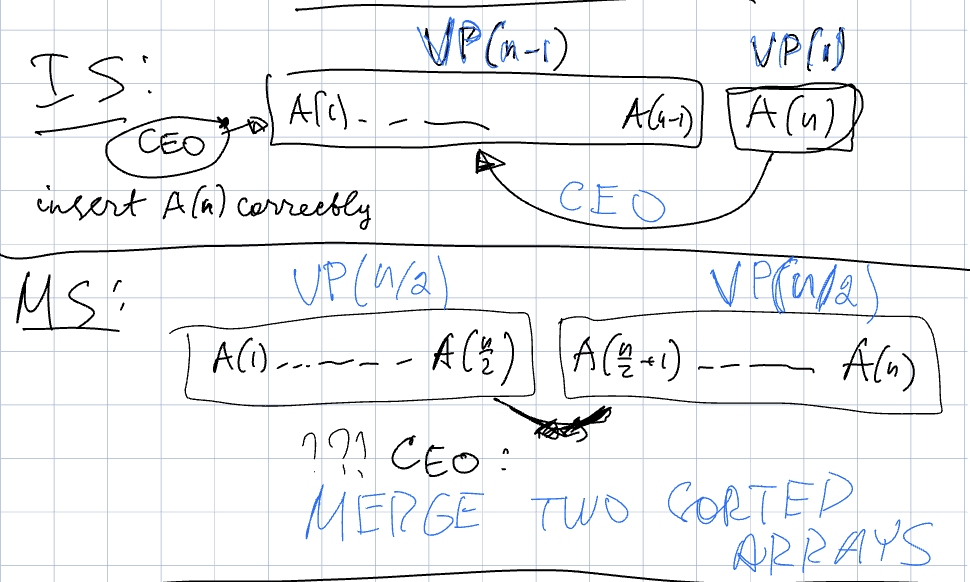 VP(n-1) VP(1)
IS:
A(1) - - — A(n-1) A(n)
CEO
CEO
insert A(n) correctly
VP(n/2) VP(n/2)
MS:
A(1)-..-—-- A(n/2) A(n/2+1) ---— A(n)
??? CEO:
MERGE TWO SORTED
ARRAYS